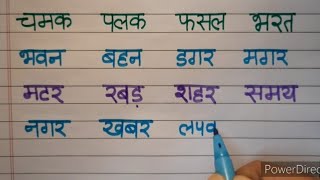 चमक पलक फसल भरत
भवन बहन डगर मगर
मटर रबड़ शहर समय
नगर खबर लपव
PowerDirec